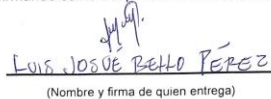 LUIS JOSUÉ BELLO PÉREZ
(Nombre y firma de quien entrega)